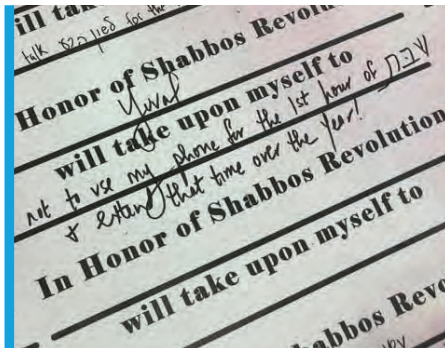 ill ta
talk
Honor of Shabbos Revolu
Yuval
will take upon myself to
not to use my phone for the 1st hour of שבת
& extend that time over the year!
In Honor of Shabbos Revolution
will take upon myself to
abbos Revo